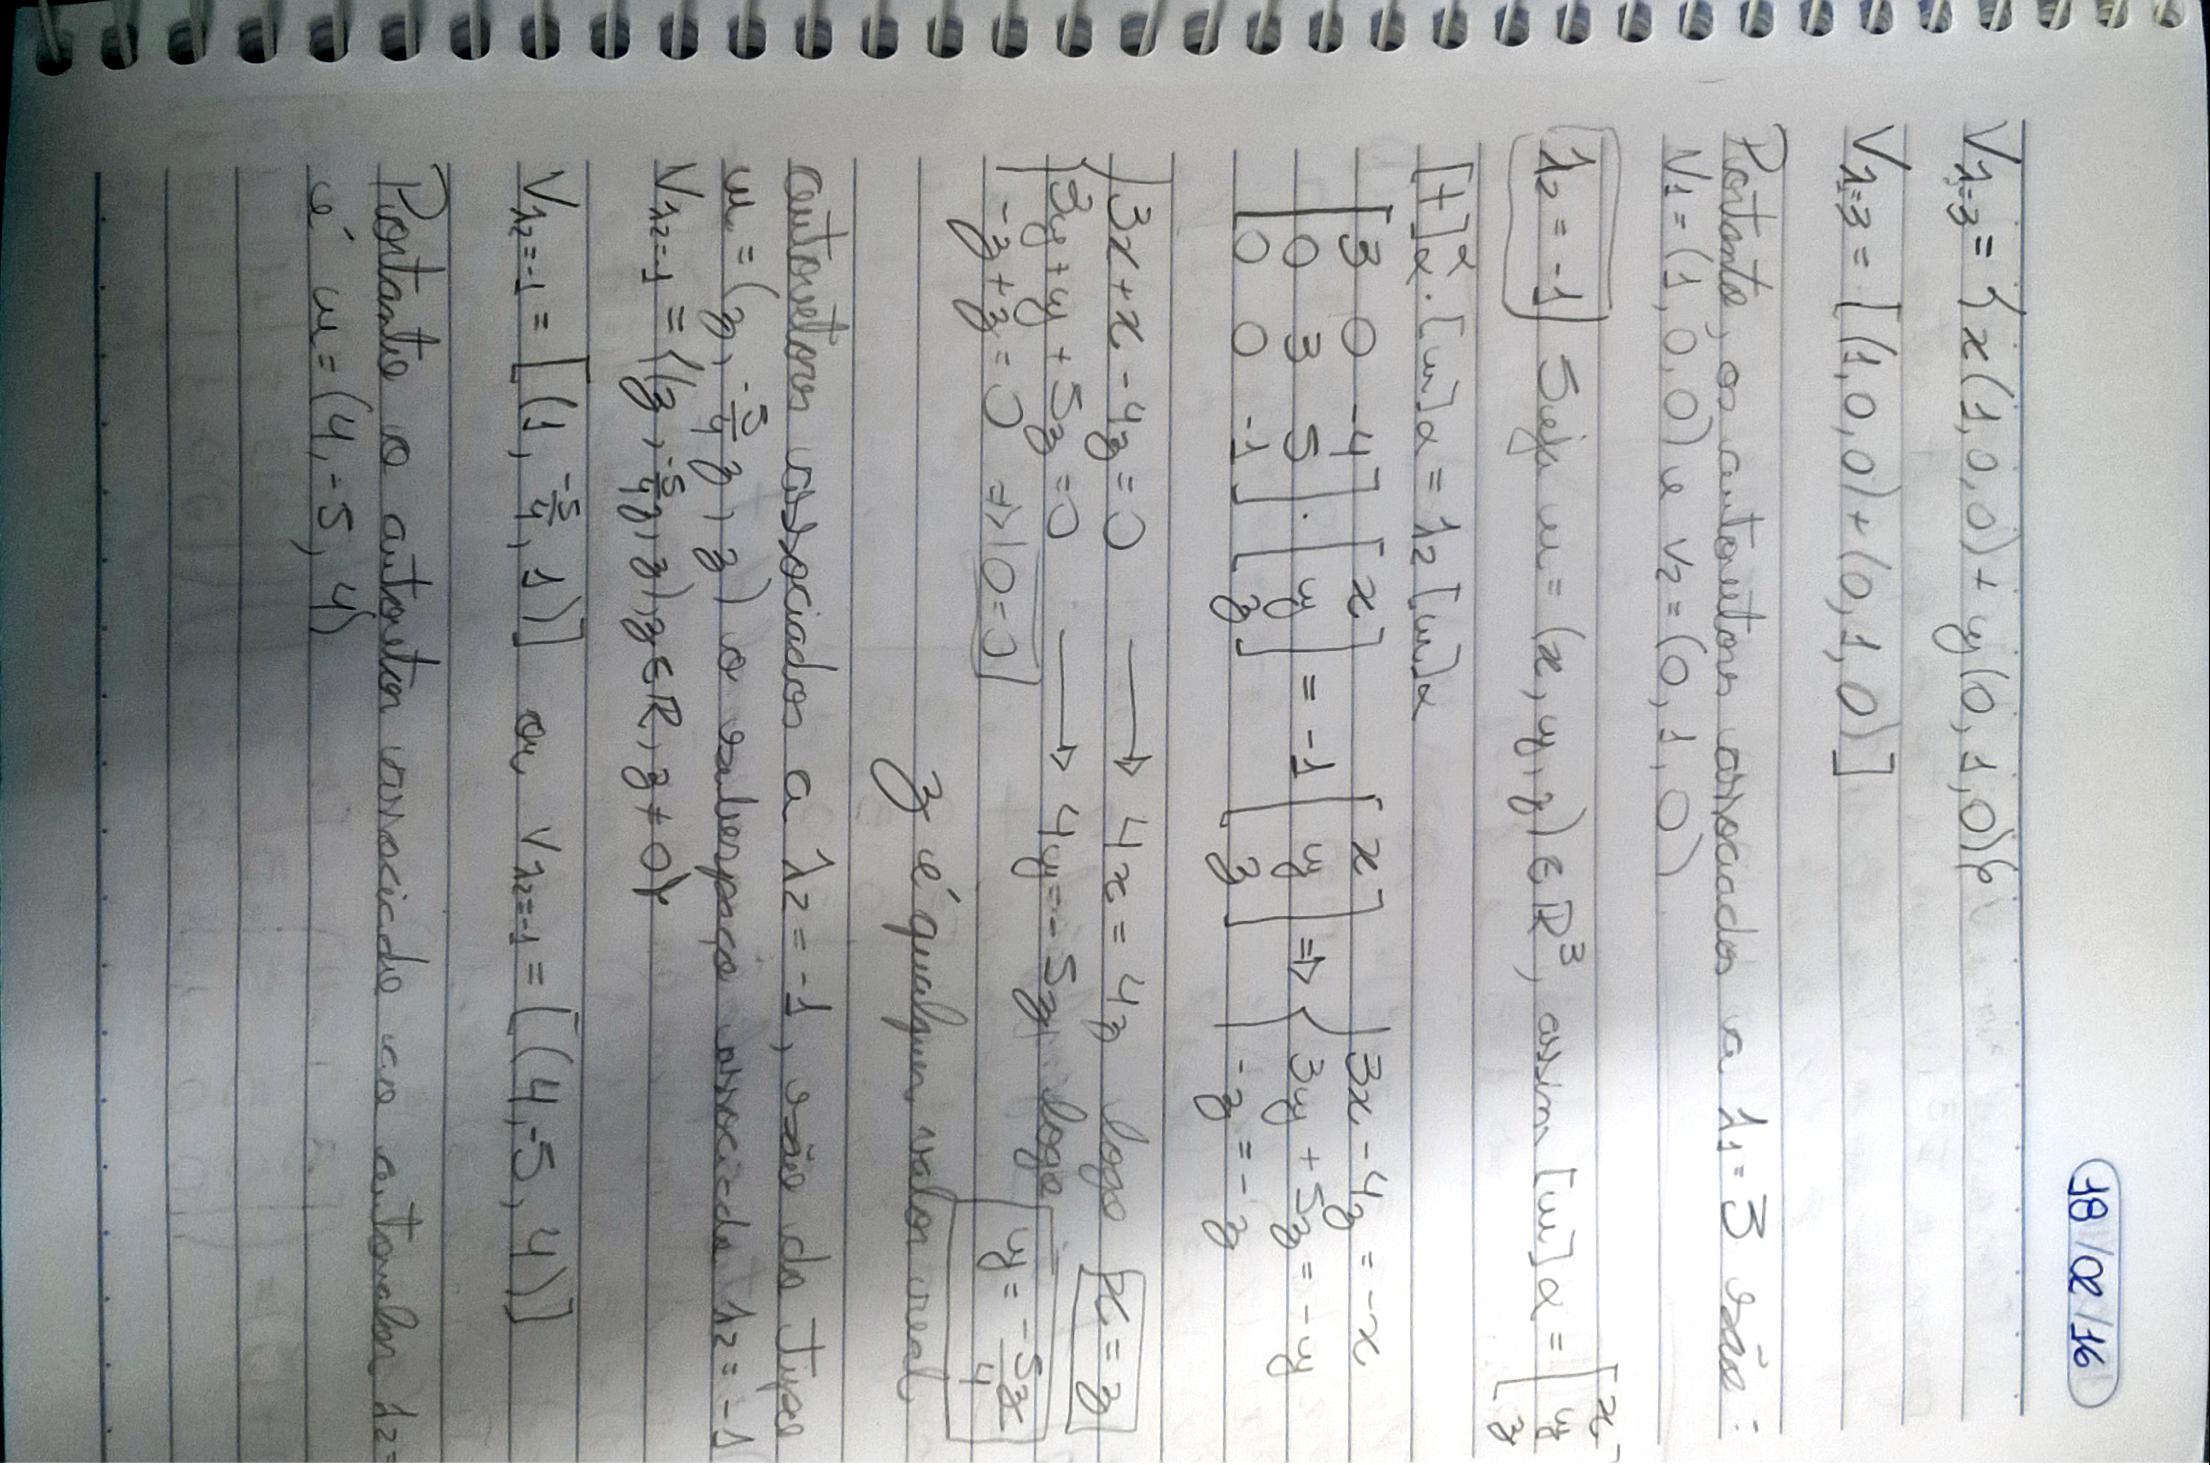 18/02/16
Vλ=3 = {x(1,0,0) + y(0,1,0)}
Vλ=3 = [(1,0,0)+(0,1,0)]
Portanto, os autovetores associados a λ1=3 são:
V1=(1,0,0) e V2=(0,1,0)
λ2 = -1 Seja u = (x, y, z) ∈ R³, assim [u]α = [x y z]
[t]αα · [u]α = λ2 [u]α
[3 0 -4] [x] [x] {3x - 4z = -x
[0 3 5] · [y] = -1 [y] => {3y + 5z = -y
[0 0 -1] [z] [z] {-z = -z
{3x + x - 4z = 0 → 4x = 4z logo x = z
{3y + y + 5z = 0 → 4y = -5z logo y = -5z/4
{-z + z = 0 => 0=0
z é qualquer valor real
autovetores associados a λ2 = -1, são do tipo
u = (z, -5/4 z, z) o subespaço associado λ2 = -1
Vλ2=-1 = {(z, -5/4 z, z), z ∈ R, z ≠ 0}
Vλ2=-1 = [(1, -5/4, 1)] ou Vλ2=-1 = [(4,-5, 4)]
Portanto o autovetor associado ao autovalor λ2=
é u = (4,-5, 4)